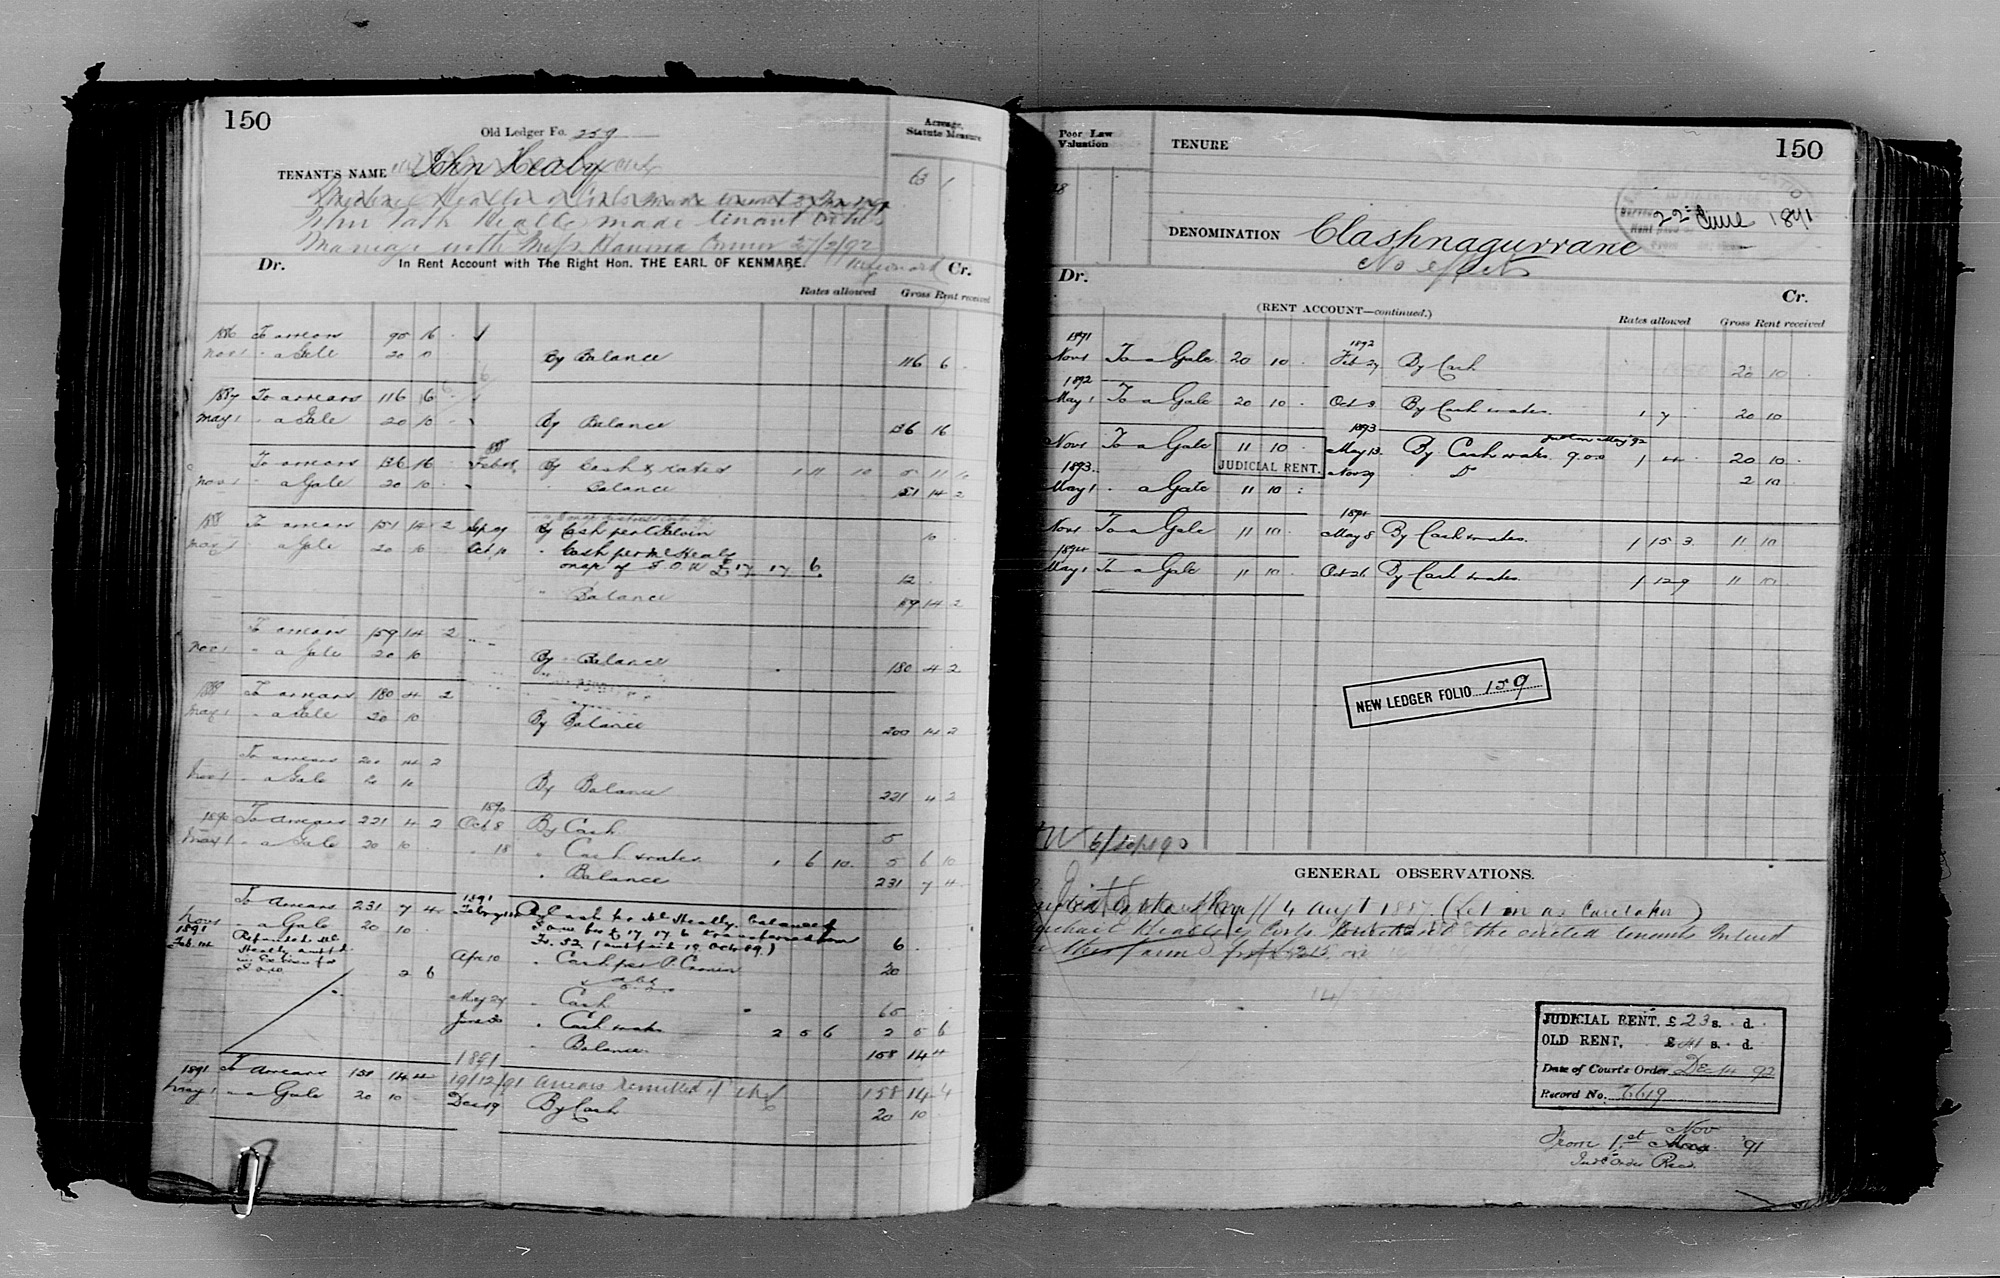 150
Old Ledger Fo. 259
Acreage,
Statute Measure
TENANT'S NAME John Healy
63 1
made tenant
John Patk Healy made tenant on his
Marriage with Miss Hanna Connor 27/2/92
Dr. In Rent Account with The Right Hon. THE EARL OF KENMARE. Cr.
Rates allowed Gross Rent received
1886 To arrears 95 16 -
Nov 1 " a Gale 20 10 By Balance 116 6 -
1887 To arrears 116 6
May 1 " a Gale 20 10 - By Balance 136 16
To arrears 136 16 1888 Feby By Cash & rates 1 11 10 5 11 10
Nov 1 " a Gale 20 10 - Balance 151 14 2
1888 To arrears 151 14 2 Sep 29 By Cash per 10
May 1 " a Gale 20 10 Oct 10 " Cash per M Healy
on ap of I.O.U £17 17 6 12
" Balance 159 14 2
To arrears 159 14 2
Nov 1 " a Gale 20 10 By Balance 180 4 2
1889 To arrears 180 4 2
May 1 " a Gale 20 10 By Balance 200 14 2
To arrears 200 14 2
Nov 1 " a Gale 20 10 By Balance 221 4 2
1890 To arrears 221 4 2 1890 Oct 8 By Cash 5
May 1 " a Gale 20 10 " 18 " Cash & rates 1 6 10 5 6 10
" Balance 231 7 4
To arrears 231 7 4 1891 Feby By Cash per Ml Healy balance of
Nov 1 " a Gale 20 10 - I.O.U for £17 17 6 transferred from
1891 Feb Refunded Ml Fo. 52 (19 Oct 89.) 6
Healy
I.O.U. 2 6 Apr 10 " Cash per P. Cronin 20
May 27 " Cash 65
June 30 " Cash & rates 2 5 6 2 5 6
" Balance 158 14 4
1891 To arrears 158 14 4 1891 19/12/91 Arrears remitted 158 14 4
May 1 " a Gale 20 10 - Dec 19 By Cash 20 10
Poor Law
Valuation
TENURE
150
22nd June 1891
DENOMINATION Clashnagurrane
No effects
Dr. Cr.
(RENT ACCOUNT—continued.)
Rates allowed Gross Rent received
1891 Nov 1 To a Gale 20 10 - 1892 Feb 27 By Cash 20 10 -
1892 May 1 To a Gale 20 10 - Oct 3 By Cash & rates 1 7 20 10
Nov 1 To a Gale 11 10 - 1893 May 13 By Cash & rates 9.0.0 1 4 20 10 -
JUDICIAL RENT.
1893 May 1 " a Gale 11 10 : Nov 29 " Do 2 10
Nov 1 To a Gale 11 10 - 1894 May 8 By Cash & rates 1 15 3 11 10
1894 May 1 To a Gale 11 10 - Oct 26 By Cash & rates 1 12 9 11 10
NEW LEDGER FOLIO 159
GENERAL OBSERVATIONS.
4 Augt 1887 (Let in as Caretaker)
Michael Healy of Corbs Purchased the evicted tenants Interest
in this farm for £215
JUDICIAL RENT. £23 s. - d. -
OLD RENT, £41 s. - d. -
Date of Court's Order Dec 14 92
Record No. 7619
From 1st Nov '91
Judl Order Recd.